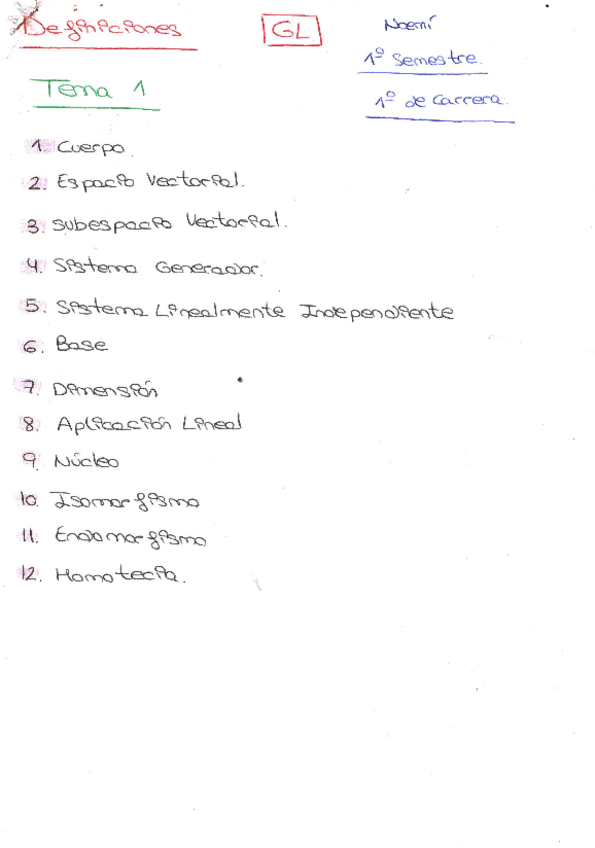 Definiciones
GL
Noemí
1º Semestre.
1º de Carrera.
Tema 1
1. Cuerpo.
2. Espacio Vectorial.
3. Subespacio Vectorial.
4. Sistema Generador.
5. Sistema Linealmente Independiente
6. Base
7. Dimensión
8. Aplicación Lineal
9. Núcleo
10. Isomorfismo
11. Endomorfismo
12. Homotecia.